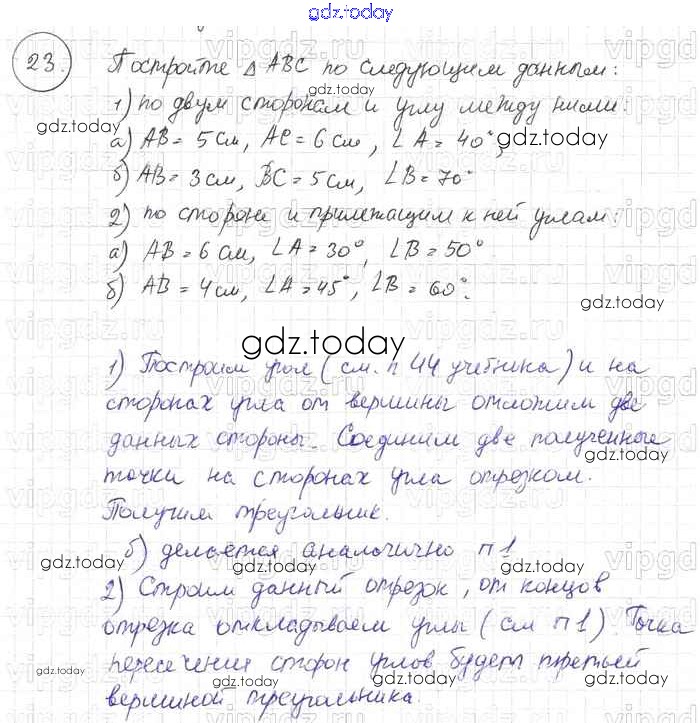 gdz.today
23. Постройте △ ABC по следующим данным:
1) по двум сторонам и углу между ними:
а) AB = 5 см, AC = 6 см, ∠A = 40°,
б) AB = 3 см, BC = 5 см, ∠B = 70°
2) по стороне и прилежащим к ней углам:
а) AB = 6 см, ∠A = 30°, ∠B = 50°
б) AB = 4 см, ∠A = 45°, ∠B = 60°.
gdz.today
1) Построим угол (см. п 44 учебника) и на
сторонах угла от вершины отложим две
данных стороны. Соединим две полученные
точки на сторонах угла отрезком.
Получим треугольник.
б) делается аналогично п1
2) Строим данный отрезок, от концов
отрезка откладываем углы (см п1). Точка
пересечения сторон углов будет третьей
вершиной треугольника.